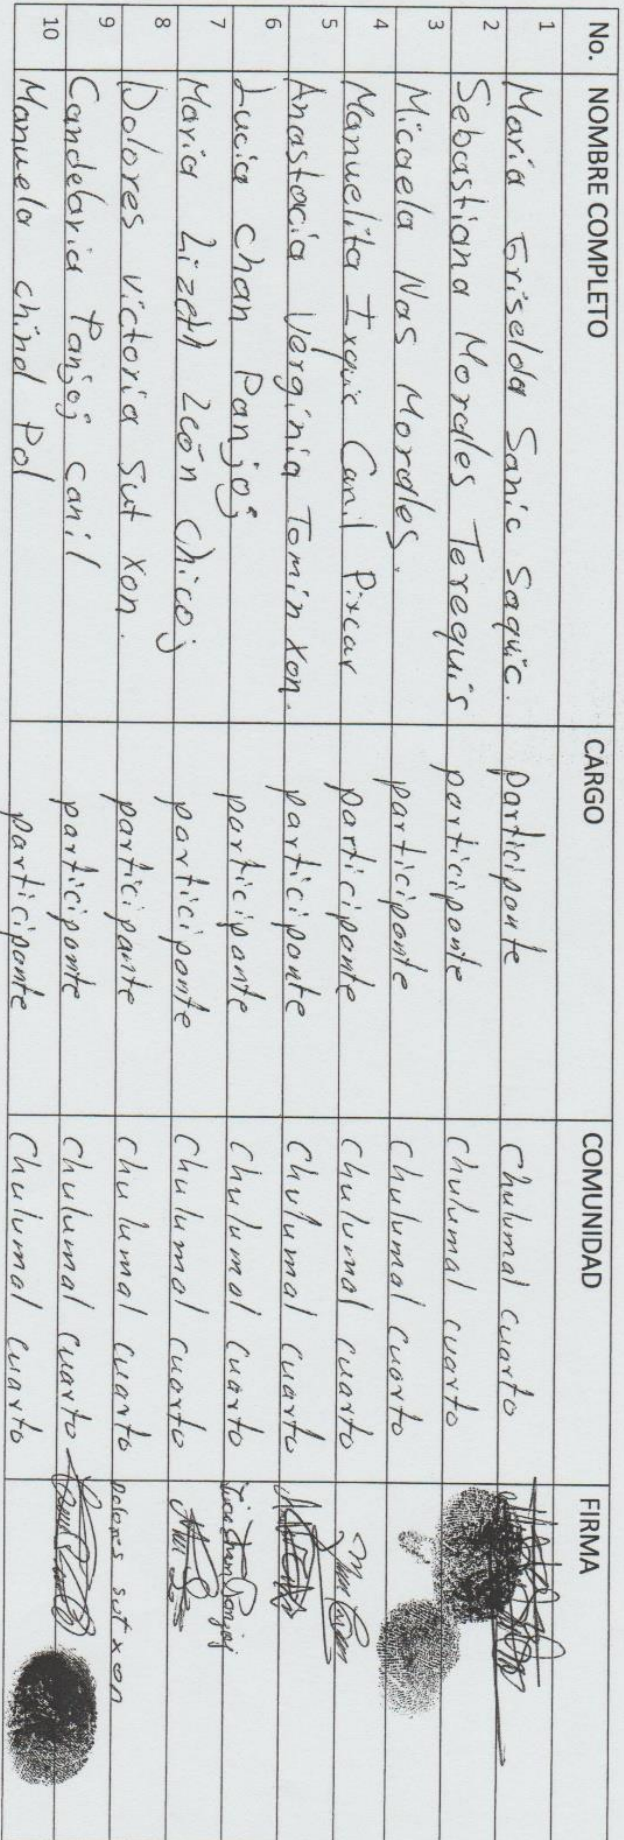 No. NOMBRE COMPLETO CARGO COMUNIDAD FIRMA
1 María Griselda Sanic Saquic. participante Chulumal cuarto
2 Sebastiana Morales Terequis participante chulumal cuarto
3 Micaela Nas Morales. participante chulumal cuarto
4 Manuelita Ixquic Canil Pixcar participante chulumal cuarto
5 Anastacia Verginia Tomin xon. participante chulumal cuarto
6 Lucia chan Panjoj participante chulumal cuarto
7 Maria Lizeth León chicoj participante chulumal cuarto
8 Dolores victoria Sut xon. participante chulumal cuarto Dolores sut xon
9 Candelaria Panjoj canil participante chulumal cuarto
10 Manuela chind Pol participante chulumal cuarto